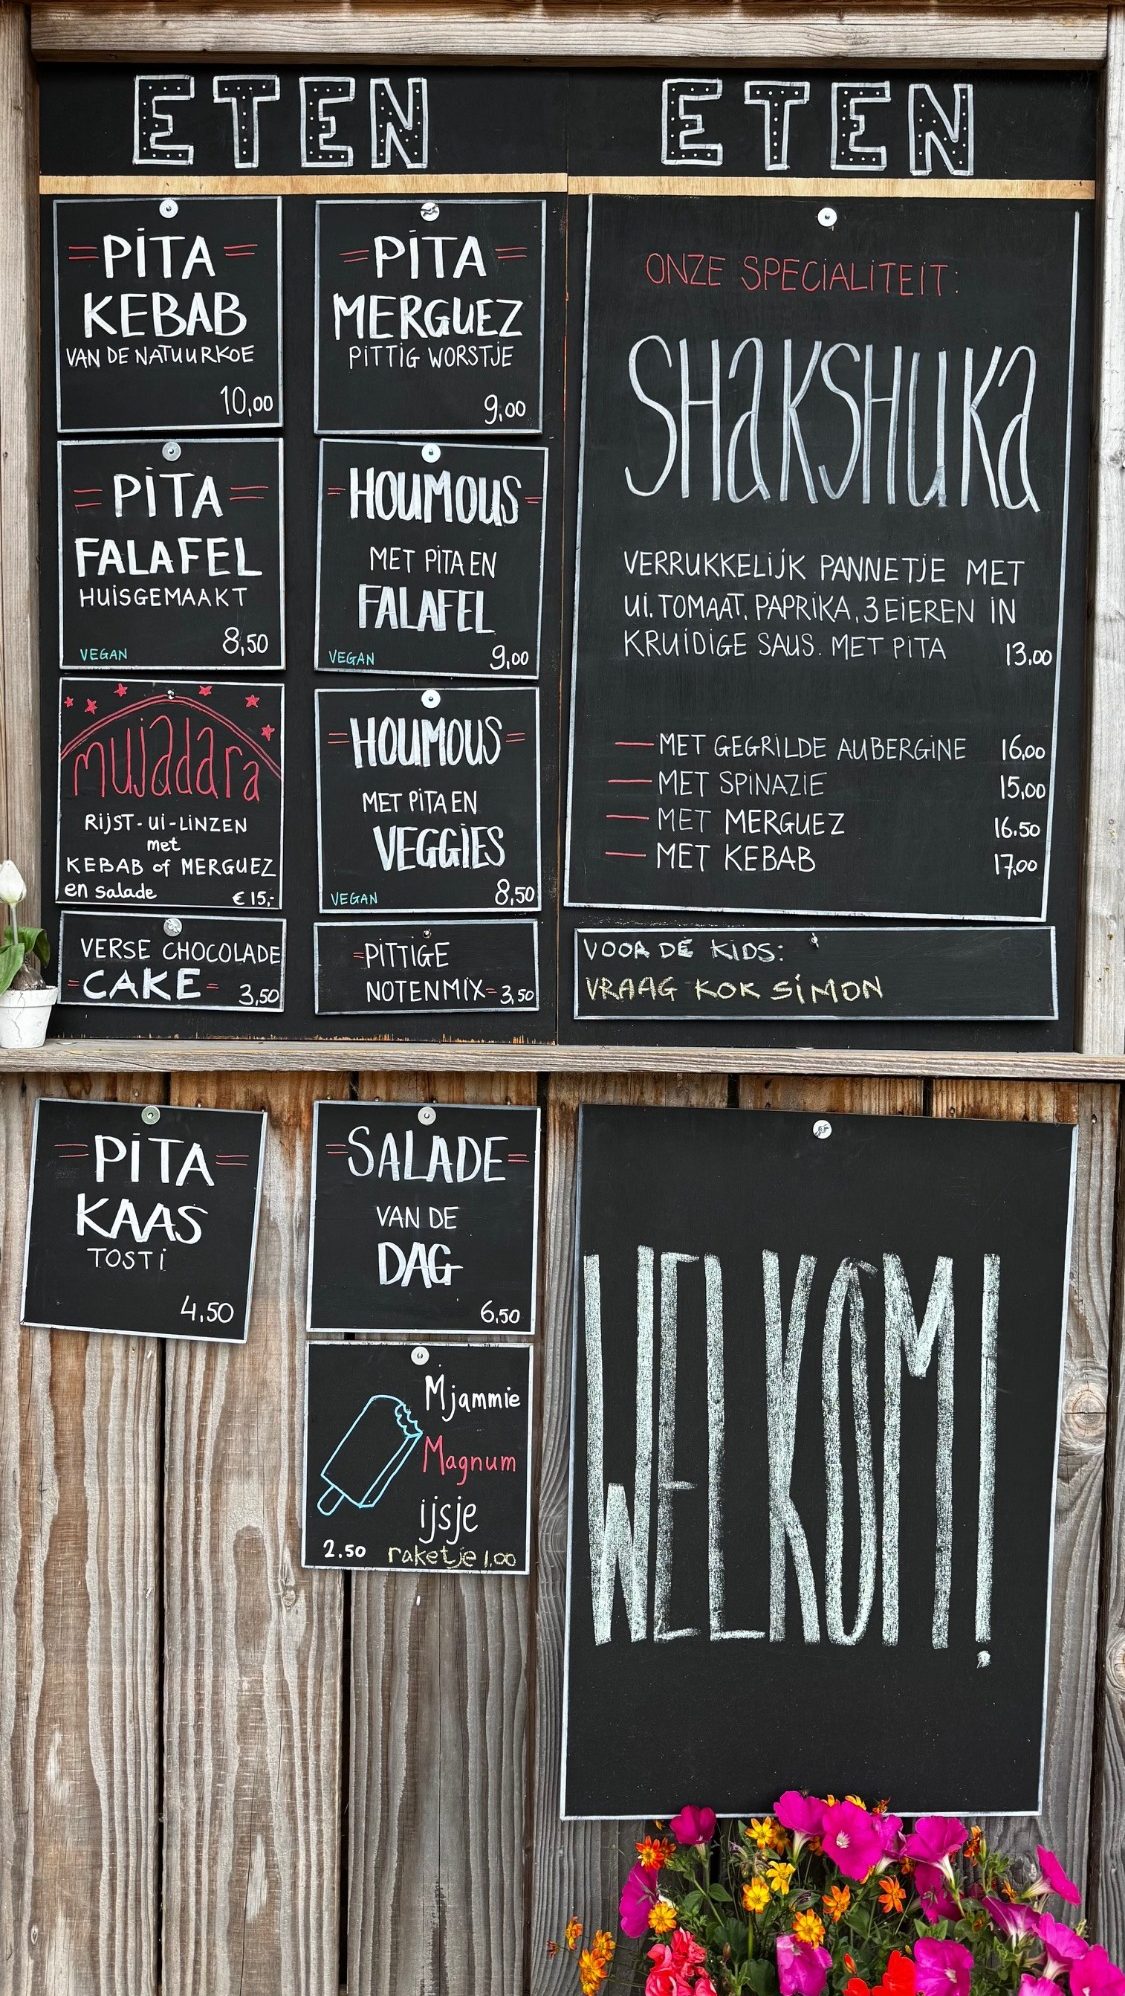 ETEN
PITA
KEBAB
VAN DE NATUURKOE
10,00
PITA
MERGUEZ
PITTIG WORSTJE
9,00
PITA
FALAFEL
HUISGEMAAKT
VEGAN 8,50
HOUMOUS
MET PITA EN
FALAFEL
VEGAN 9,00
mujadara
RIJST-UI-LINZEN
met
KEBAB of MERGUEZ
en salade € 15,-
HOUMOUS
MET PITA EN
VEGGIES
VEGAN 8,50
VERSE CHOCOLADE
CAKE 3,50
PITTIGE
NOTENMIX 3,50
ETEN
ONZE SPECIALITEIT:
SHAKSHUKA
VERRUKKELIJK PANNETJE MET
UI. TOMAAT. PAPRIKA, 3 EIEREN IN
KRUIDIGE SAUS. MET PITA 13,00
— MET GEGRILDE AUBERGINE 16,00
— MET SPINAZIE 15,00
— MET MERGUEZ 16.50
— MET KEBAB 17,00
VOOR DE KIDS:
VRAAG KOK SIMON
PITA
KAAS
TOSTI
4,50
SALADE
VAN DE
DAG
6,50
Mjammie
Magnum
ijsje
2.50 raketje 1,00
WELKOM!